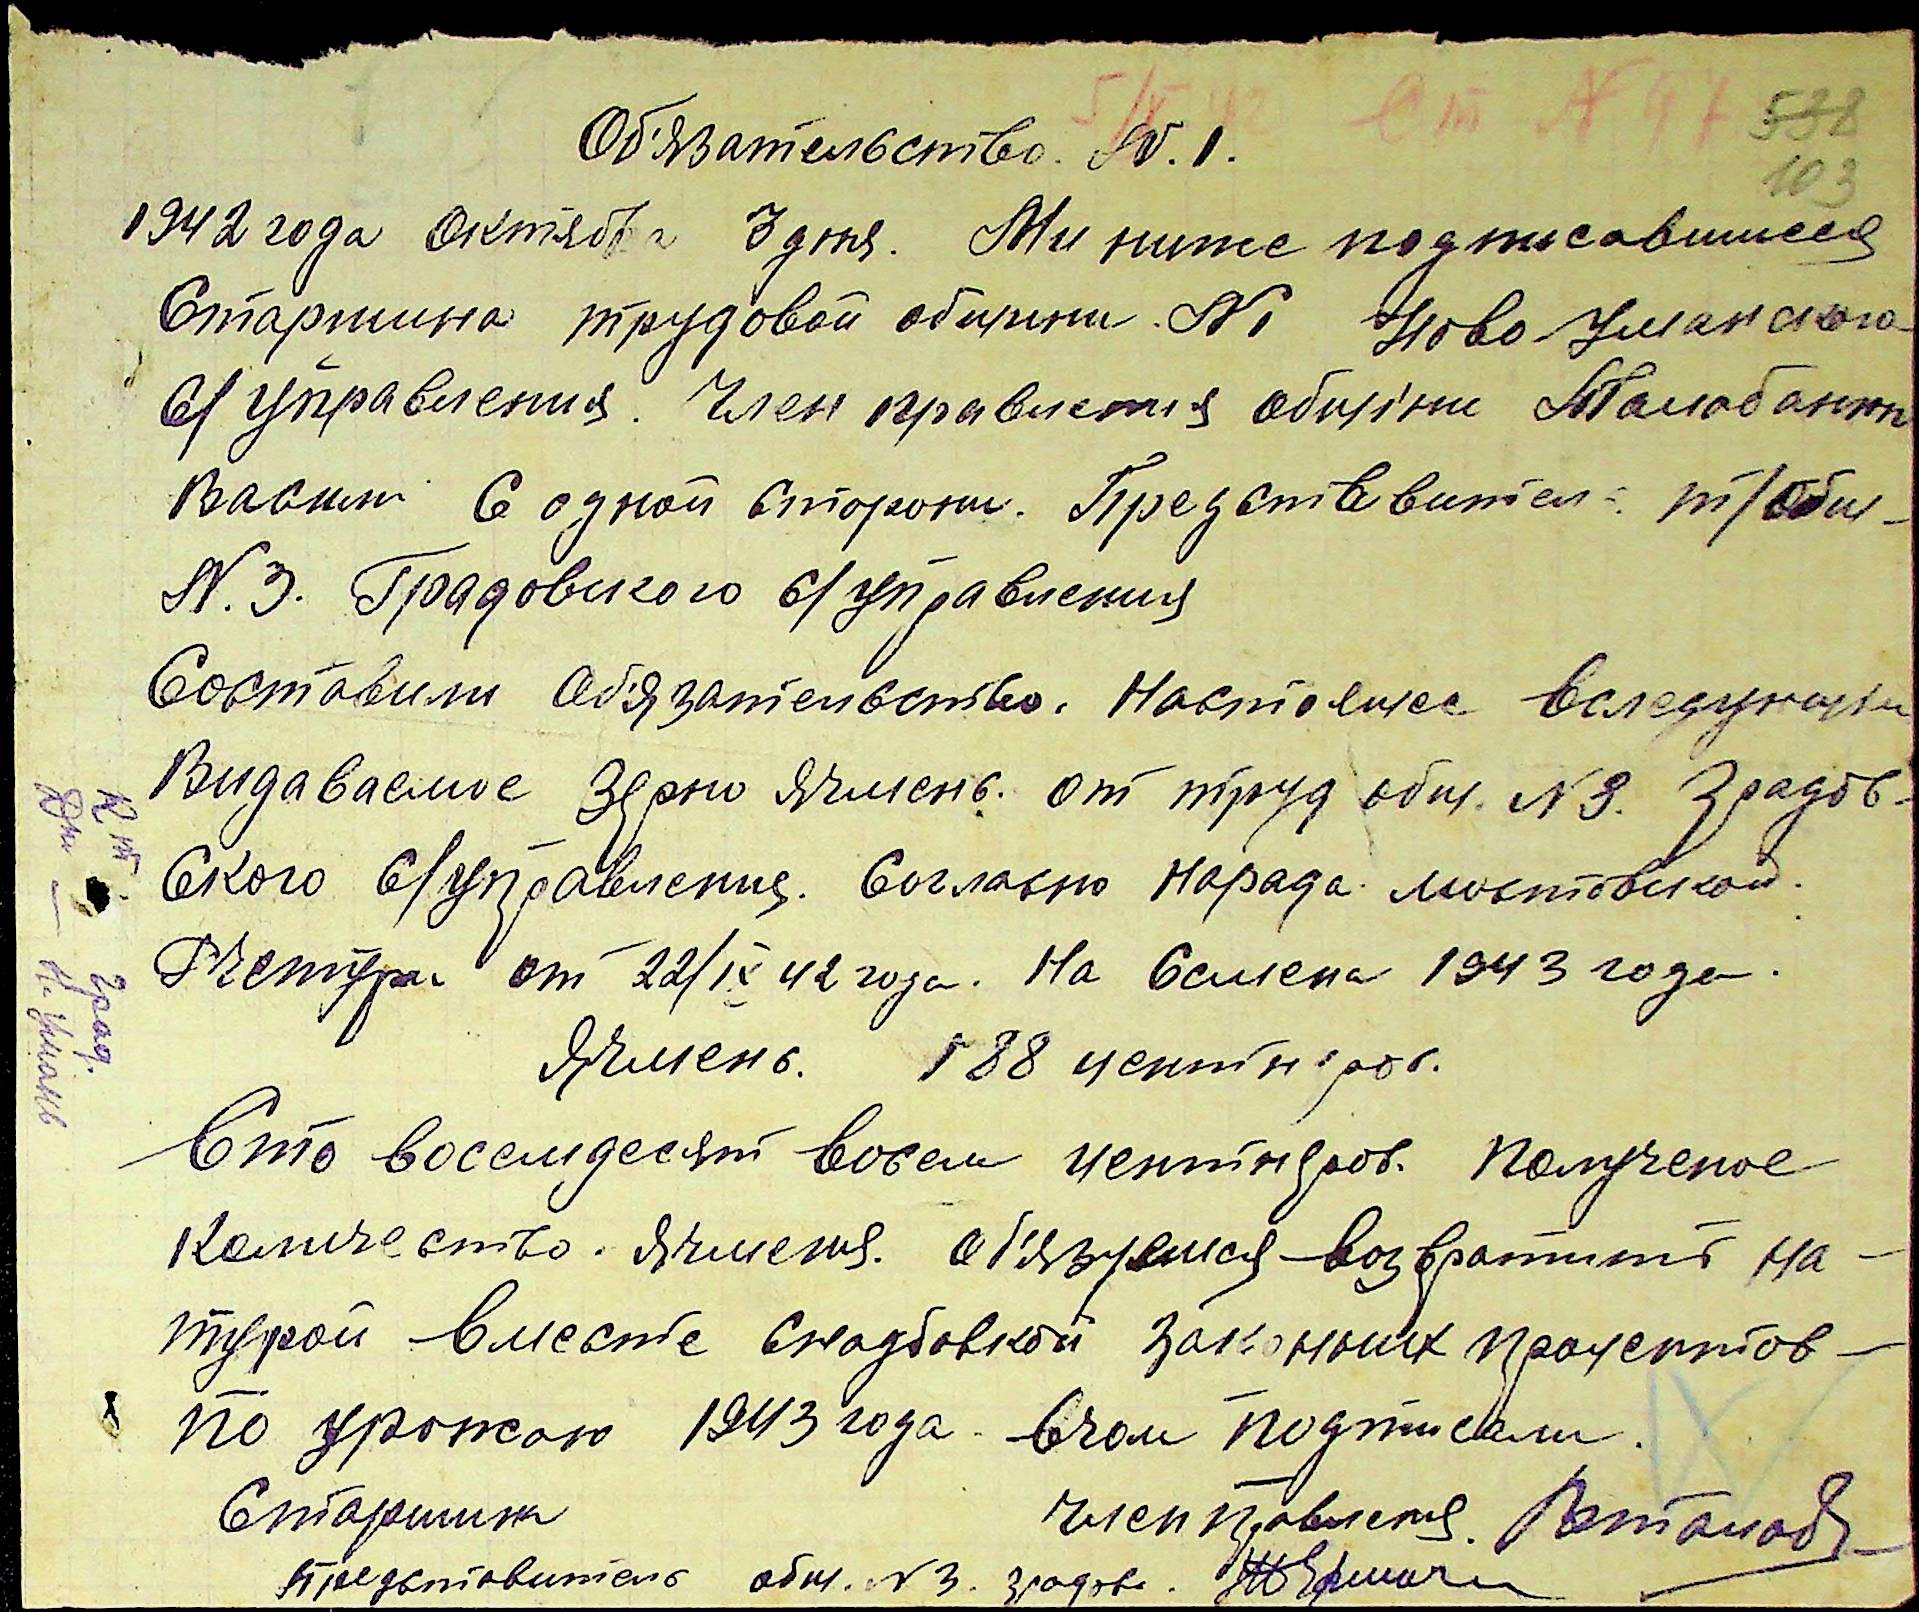 538
103
Об'язательство. N. 1.
1942 года Октября 3 дня. Ми ниже подписавшиеся
Старшина трудовой общини. N1 Ново-Уманского
С/управления. Член правления общіни Талабанюк
Васили С одной сторони. Предствевител: т/общ-
N. 3. Градовского с/управления
Составили Об'язательство. Настоящее вследующім
Видаваемое Зерно Ячмень. от труд общ. N 3. Градов-
Ского С/управления. Согласно Нарада. Мостовской.
от 22/ІХ 42 года. На Семена 1943 года.
Ячмень. 188 центнеров.
Сто восемдесят восем центнеров. Полученое
Количество. Ячменя. об'язуемся возвратить на-
турой вместе снадбавкой законних процентов-
По урожаю 1943 года. Вчом подписали.
Старшина Член Правления.
Представитель общ. N 3. градов.
Град.
Н. Умань